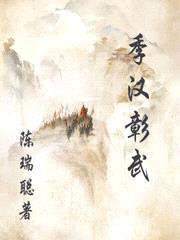 季汉彰武
陈瑞聪著